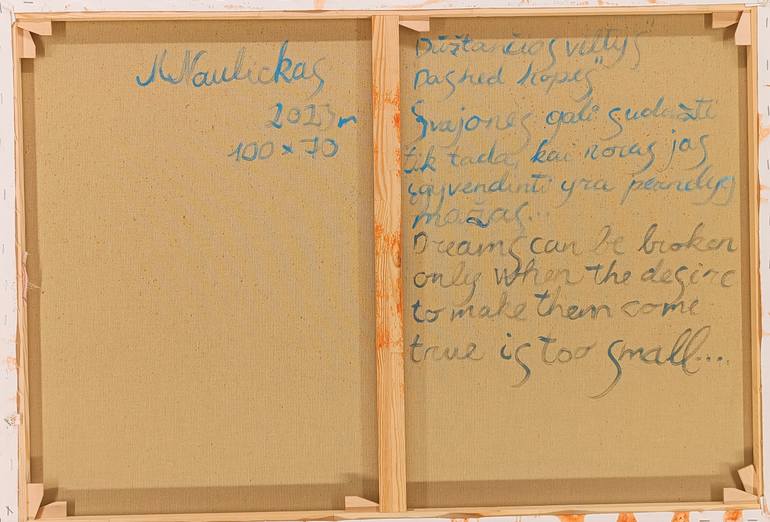 M Naulickas
2023m
100 x 70
Dūžtančios viltys"
Dashed hopes"
Svajones gali sudužti
tik tada, kai noras jas
įgyvendinti yra pernelyg
mažas...
Dreams can be broken
only when the desire
to make them come
true is too small...